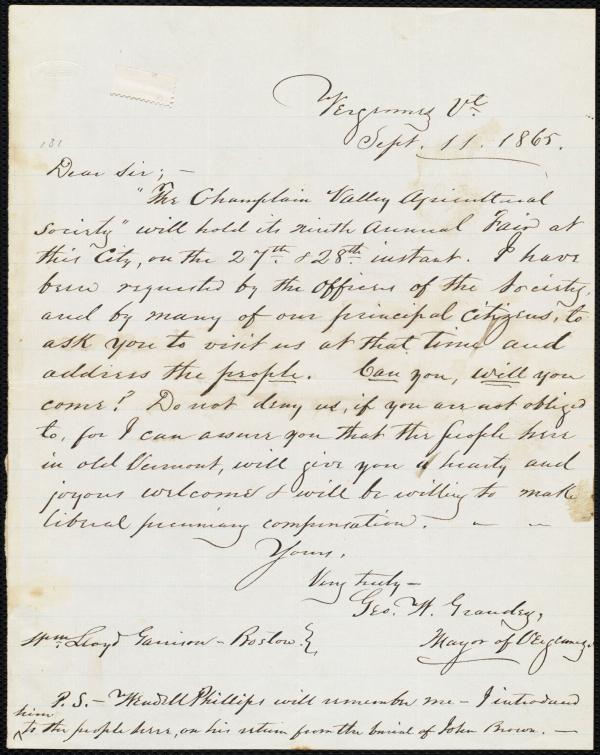 Vergennes Vt.
Sept. 11. 1865.
131
Dear Sir; –
"The Champlain Valley Agricultural
Society" will hold its ninth Annual Fair at
this City, on the 27th & 28th instant. I have
been requested by the Officers of the Society,
and by many of our principal citizens, to
ask you to visit us at that time and
address the people. Can you, will you
come? Do not deny us, if you are not obliged
to, for I can assure you that the people here
in old Vermont, will give you a hearty and
joyous welcome & will be willing to make
liberal pecuniary compensation. – –
Yours,
Very truly –
Geo. W. Grandey,
Wm Lloyd Garrison – Boston. } Mayor of Vergennes.
P.S. – Wendell Phillips will remember me – I introduced
him
to the people here, on his return from the burial of John Brown. –